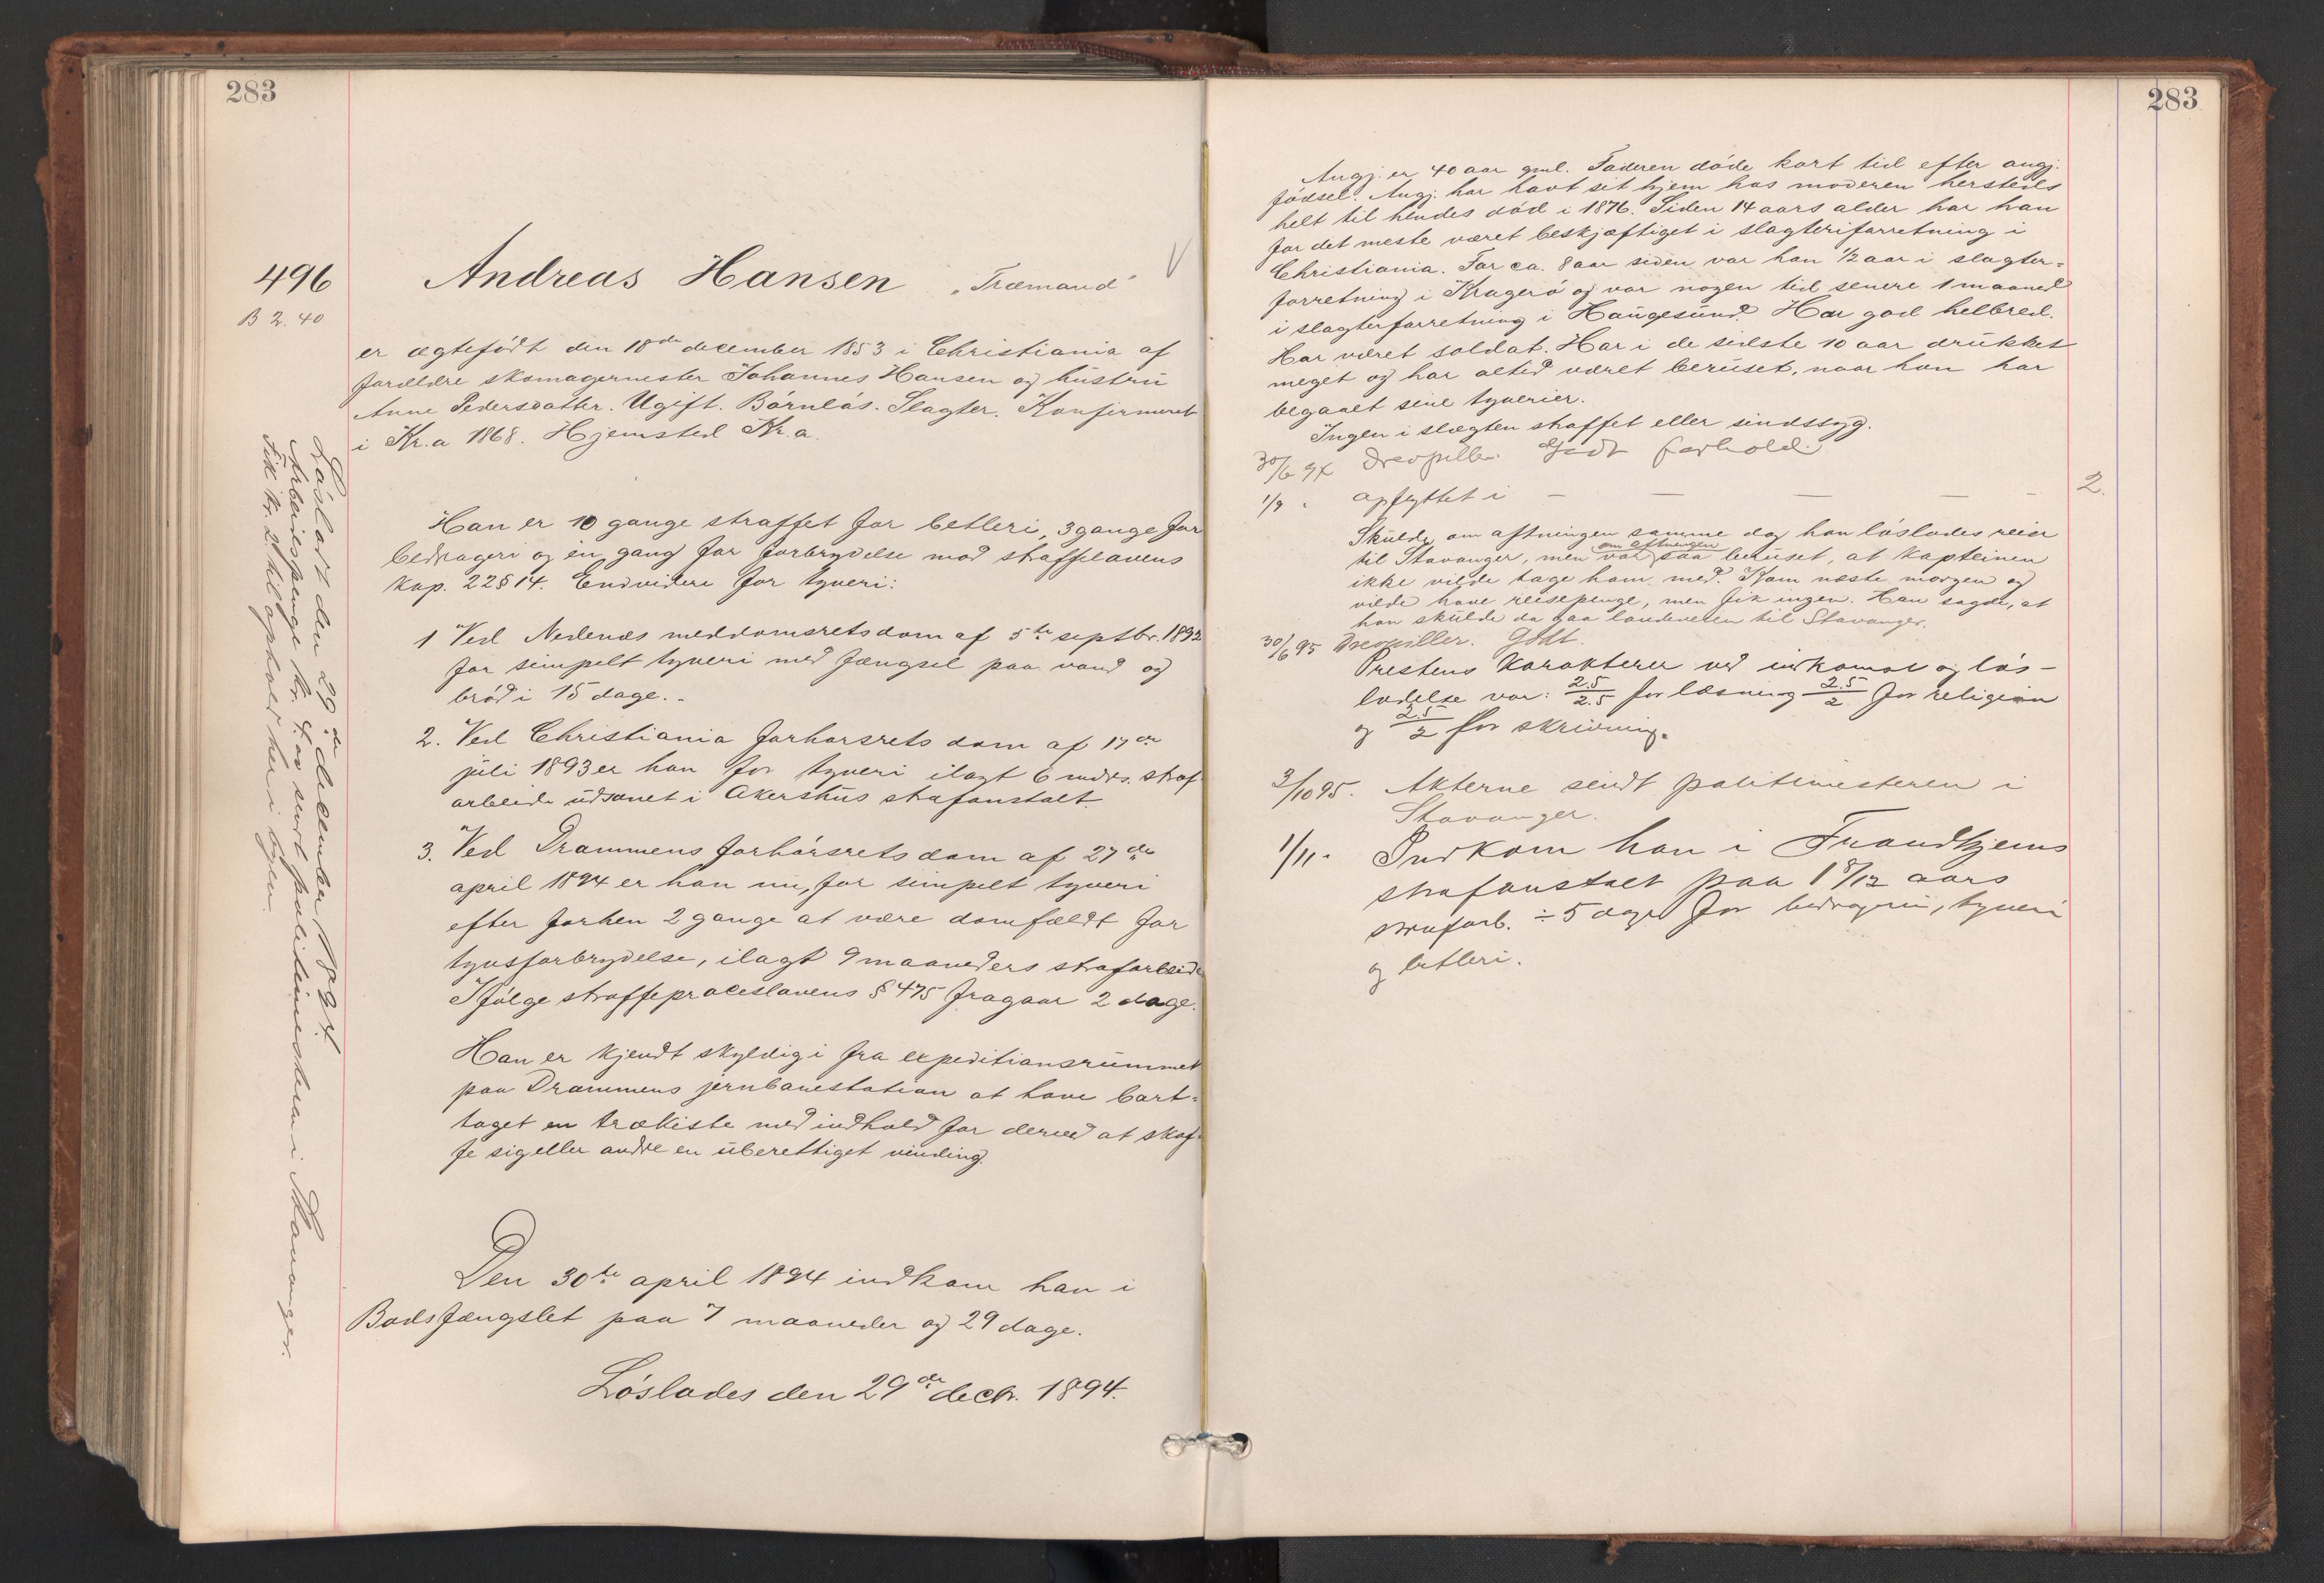 283
496
B 2.40
Andreas Hansen „Træmand"
er ægtefødt den 18de december 1853 i Christiania af
forældre skomagermester Johannes Hansen og hustru
Anne Pedersdatter. Ugift. Børnløs. Slagter. Konfirmeret
i Kr.a 1868. Hjemsted Kr.a.
Han er 10 gange straffet for betleri, 3 gange for
bedrageri og en gang for forbrydelse mod straffelovens
kap. 22 § 14. Endvidere for tyveri:
1 Ved Nedenæs meddomsretsdom af 5te septbr. 1892
for simpelt tyveri med fængsel paa vand og
brød i 15 dage.
2. Ved Christiania forhørsrets dom af 17de
juli 1893 er han for tyveri ilagt 6 mdrs. straf
arbeide udsonet i Akershus strafanstalt.
3. Ved Drammens forhørsrets dom af 27de
april 1894 er han nu, for simpelt tyveri
efter forhen 2 gange at være domfældt for
tyvsforbrydelse, ilagt 9 maaneders strafarbeide
Ifølge straffeproceslovens § 475 fragaar 2 dage.
Han er kjendt skyldig i fra expeditionsrummet
paa Drammens jernbanestation at have bort-
taget en trækiste med indhold for derved at skaf-
fe sig eller andre en uberettiget vinding.
Den 30te april 1894 indkom han i
Bodsfængslet paa 7 maaneder og 29 dage.
Løslodes den 29de decbr. 1894.
Løsladt den 29de december 1894.
Arbeidspenge kr. 4.00 sendt politimesteren i Stavanger.
Fik kr. 2 til ophold her i byen.
283
Angj. er 40 aar gml. Faderen døde kort tid efter angj.
fødsel. Angj. har havt sit hjem hos moderen hersteds
helt til hendes død i 1876. Siden 14 aars alder har han
for det meste været beskjæftiget i slagteriforretning i
Christiania. For ca. 8 aar siden var han 1/2 aar i slagter-
forretning i Kragerø og var nogen tid senere 1 maaned
i slagterforretning i Haugesund. Har god helbred.
Har været soldat. Har i de sidste 10 aar drukket
meget og har altid været beruset, naar han har
begaaet sine tyverier.
Ingen i slægten straffet eller sindssyg.
30/6 94 Drevpiller. Godt forhold.
1/9 " opflyttet i — — — — — 2.
Skulde om aftningen samme dag han løslodes reise
til Stavanger, men om aftningen var saa beruset, at kapteinen
ikke vilde tage ham med. Kom næste morgen og
vilde have reisepenge, men fik ingen. Han sagde, at
han skulde da gaa landeveien til Stavanger.
30/6 95 Drevpiller. Godt.
Prestens karakterer ved indkomst og løs-
ladelse var: 2.5/2.5 for læsning 2.5/2 for religion
og 2.5/2 for skrivning.
3/10 95. Akterne sendt politimesteren i
Stavanger.
1/11. Indkom han i Trondhjems
strafanstalt paa 1 8/12 aars
strafarb. ÷ 5 dage for bedrageri, tyveri
og betleri.